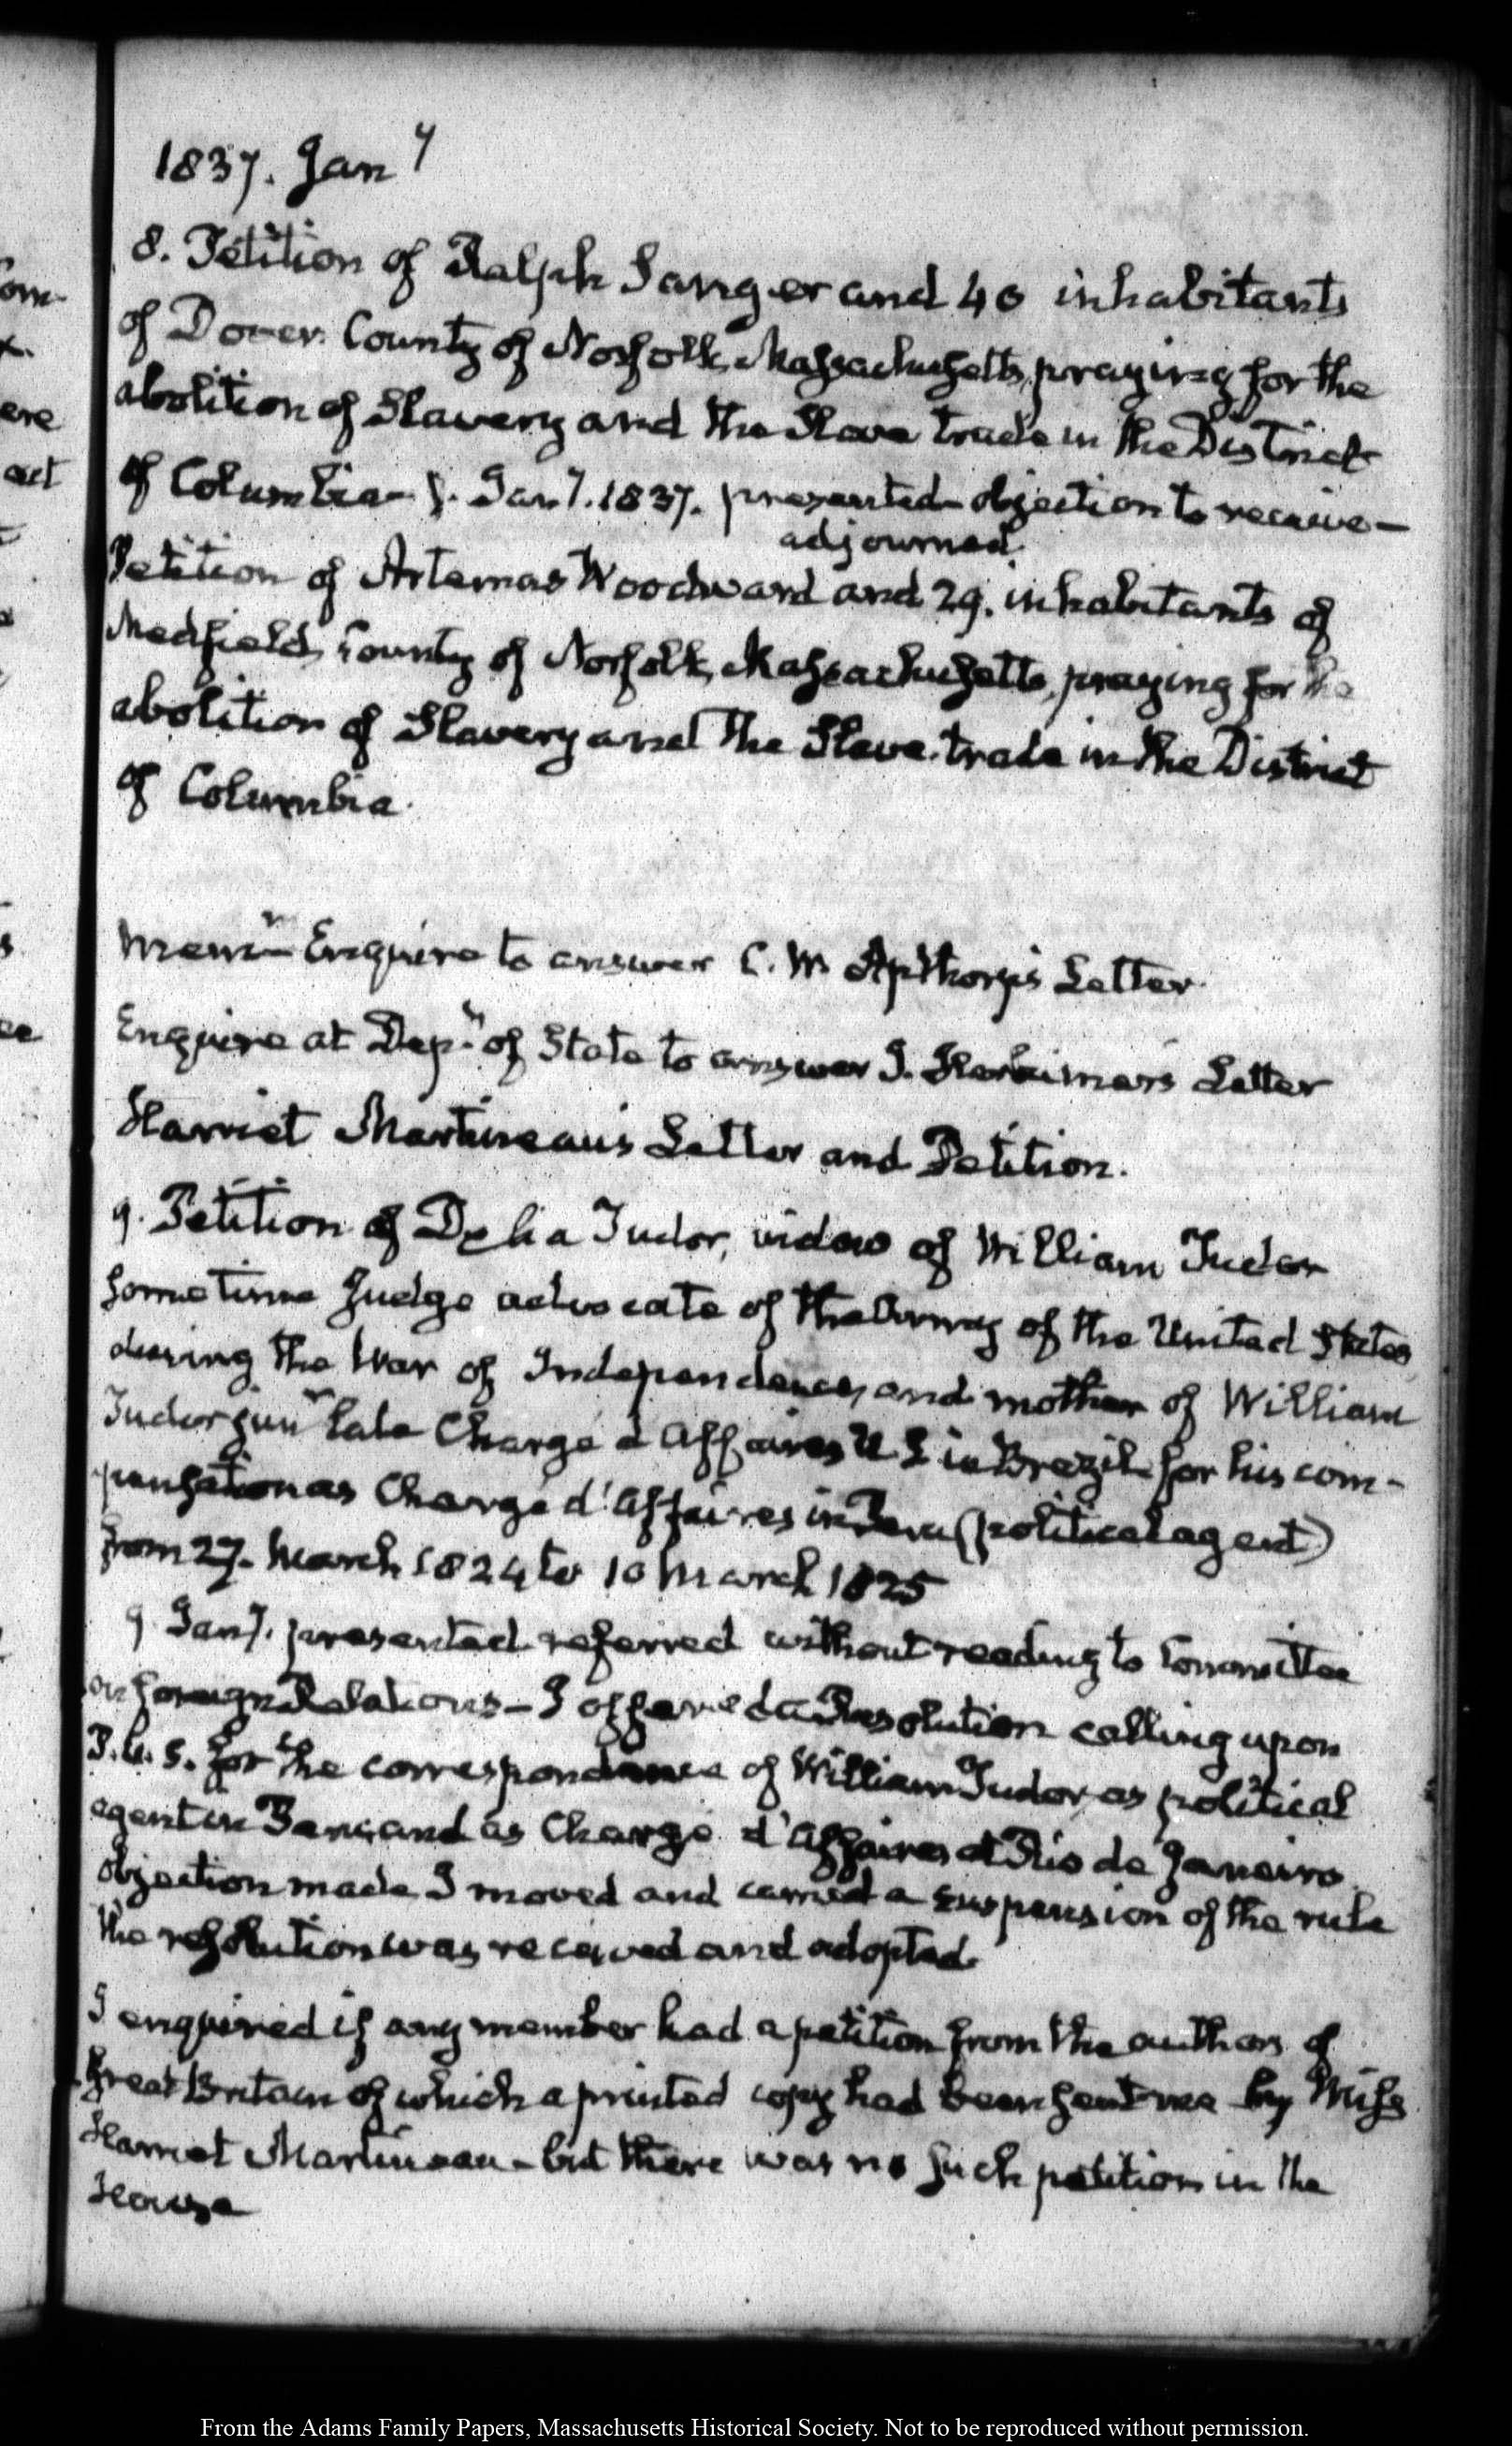 1837. Jany
8. Petition of Ralph Sanger and 40 inhabitants
of Dover. County of Norfolk, Massachusetts, praying for the
abolition of Slavery and the Slave trade in the District
of Columbia— Jany. 1837. presented—objection to receive—
adjourned.
Petition of Artemas Woodward and 29. inhabitants of
Medfield, County of Norfolk, Massachusetts, praying for the
abolition of Slavery and the Slave trade in the District
of Columbia.
Mem.m Enquire to answer C. W Apthorp's Letter.
Enquire at Dep.t of State to answer J. Herkimer's Letter
Harriet Martineau's Letter and Petition.
9. Petition of Delia Tudor, widow of William Tudor
sometime Judge advocate of the Army of the United States
during the War of Independence, and mother of William
Tudor junr late Chargé d'Affaires U.S. in Brazil—for his com-
pensation as Chargé d'Affaires in Peru (political agent)
from 27. March 1824 to 10 March 1825
9 Jany. presented referred without reading to Committee
on foreign Relations—I offered a Resolution calling upon
P.U.S. for the correspondence of William Tudor, as political
agent in Peru, and as Chargé d'Affaires at Rio de Janeiro.
objection made I moved and carried a suspension of the rule
the resolution was received and adopted.
I enquired if any member had a petition from the authors of
Great Britain of which a printed copy had been sent me by Miss
Harriet Martineau—but there was no such petition in the
House
From the Adams Family Papers, Massachusetts Historical Society. Not to be reproduced without permission.